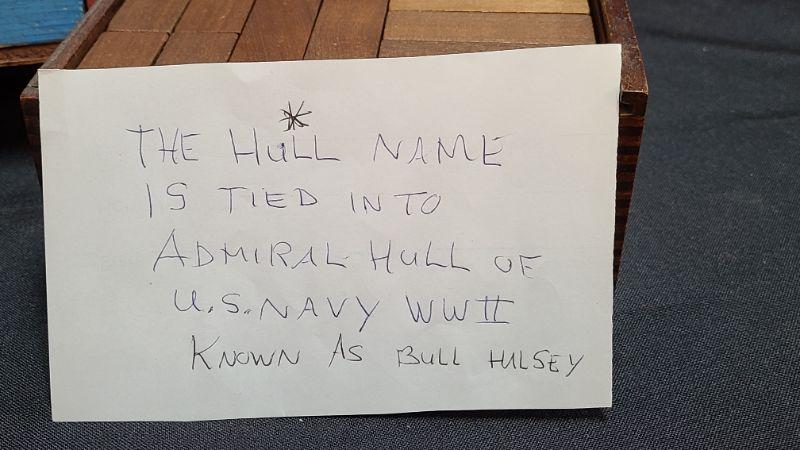 *
THE HULL NAME
IS TIED INTO
ADMIRAL HULL OF
U.S. NAVY WWII
KNOWN AS BULL HALSEY